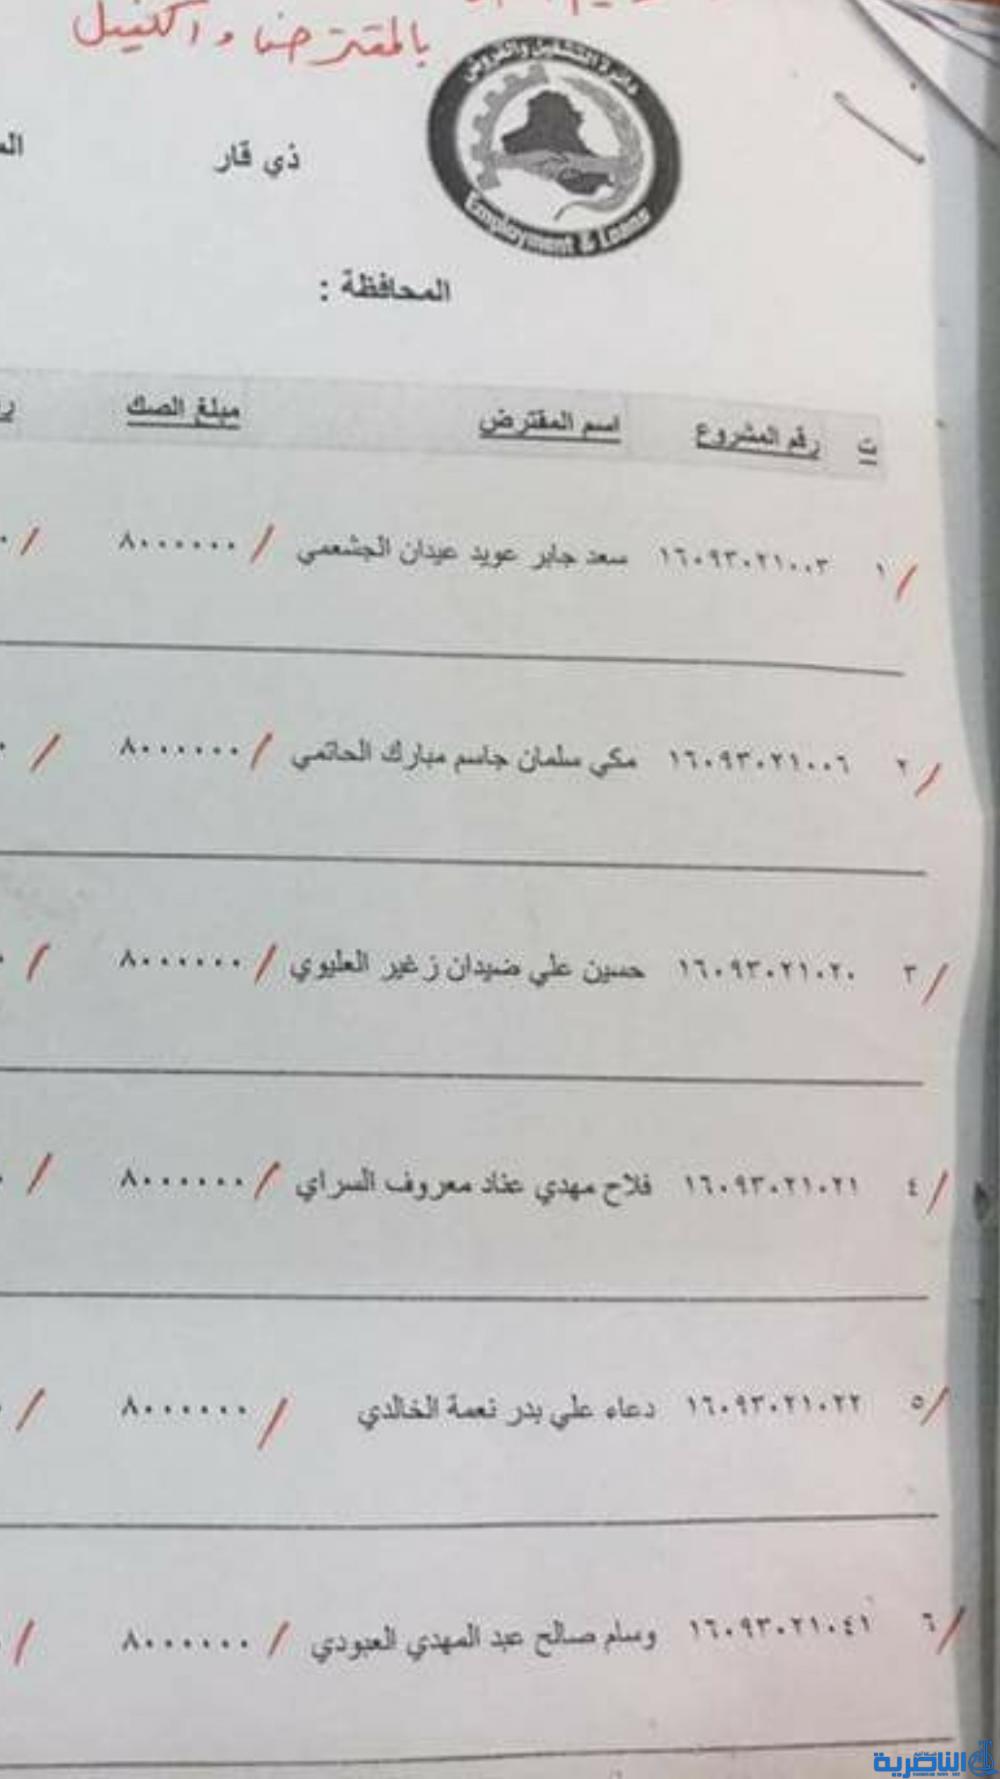 بالمقترض والكفيل
دائرة التشغيل والقروض
Employment & Loans
ذي قار
المحافظة :
ت رقم المشروع اسم المقترض مبلغ الصك
١ ١٦٠٩٣٠٢١٠٠٣ سعد جابر عويد عيدان الجشعمي ٨٠٠٠٠٠٠
٢ ١٦٠٩٣٠٢١٠٠٦ مكي سلمان جاسم مبارك الحاتمي ٨٠٠٠٠٠٠
٣ ١٦٠٩٣٠٢١٠٢٠ حسين علي ضيدان زغير العليوي ٨٠٠٠٠٠٠
٤ ١٦٠٩٣٠٢١٠٢١ فلاح مهدي عناد معروف السراي ٨٠٠٠٠٠٠
٥ ١٦٠٩٣٠٢١٠٢٢ دعاء علي بدر نعمة الخالدي ٨٠٠٠٠٠٠
٦ ١٦٠٩٣٠٢١٠٤١ وسام صالح عبد المهدي العبودي ٨٠٠٠٠٠٠
الناصرية